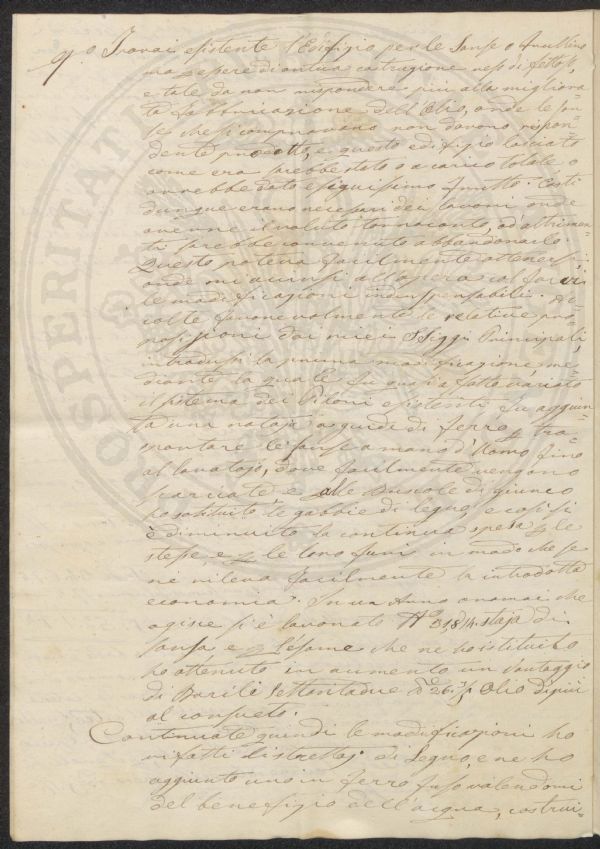 9.º Trovai esistente l'Edifizio per le Sanse o Frullino
ma essere di antica costruzione
e tale da non rispondere più alla migliora-
ta fabbricazione dell'Olio, onde le San-
se, che si compravano non davano rispon-
dente prodotto, e questo edifizio lasciato
come era sarebbe stato a carico totale o
avrebbe dato esiguissimo frutto. Costì
dunque erano necessari dei lavori onde
averne il voluto tornaconto, od altrimen-
ti sarebbe convenuto abbandonarlo.
Questo poteva facilmente ottenersi;
onde mi accinsi all'opera col farvi
le modificazioni indispensabili. Ac-
colte favorevolmente le relative pro-
posizioni dai miei SSiggi Principali,
introdussi la prima modificazione, me-
diante la quale fu quasi affatto variato
il sistema dei Pitoni esistenti fu aggiun-
ta una rotaja a guide di ferro p tra-
sportare le sanse a mano d'Uomo fino
al lavatojo, dove facilmente vengono
scaricate, e alle Buscole di giunco
ho sostituito le gabbie di legno, e così si
è diminuito la continua spesa p le
stesse, e p le loro funi in modo che se
ne rileva facilmente la introdotta
economia. In un Anno oramai che
agisce si è lavorato Nº 8,814. staja di
sansa, e p l'esame che ne ho istituito
ho ottenuto in aumento un vantaggio
di Barili Settantadue Olio di più
al consueto.
Continuate quindi le modificazioni ho
rifatti li strettoj di Legno, e ne ho
aggiunto uno in ferro fuso valendomi
del benefizio dell'acqua, costrui-
PROSPERITATI